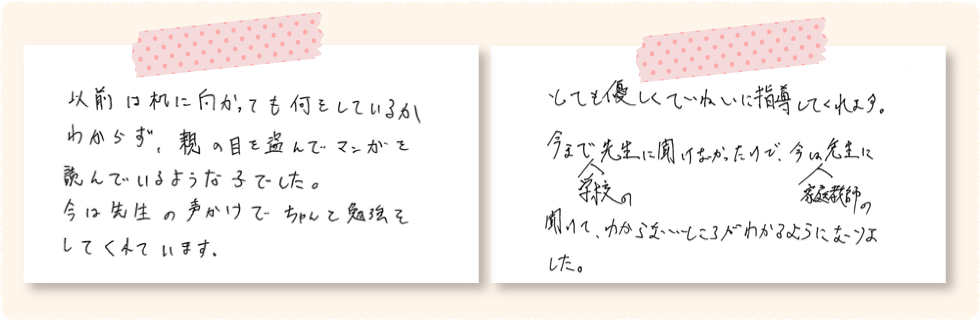 以前は机に向かっても何をしているか
わからず、親の目を盗んでマンガを
読んでいるような子でした。
今は先生の声かけでちゃんと勉強を
してくれています。
とても優しくていねいに指導してくれます。
今まで先生に聞けなかったけど、今は先生に
学校の
家庭教師の
聞けて、わからないところがわかるようになりま
した。